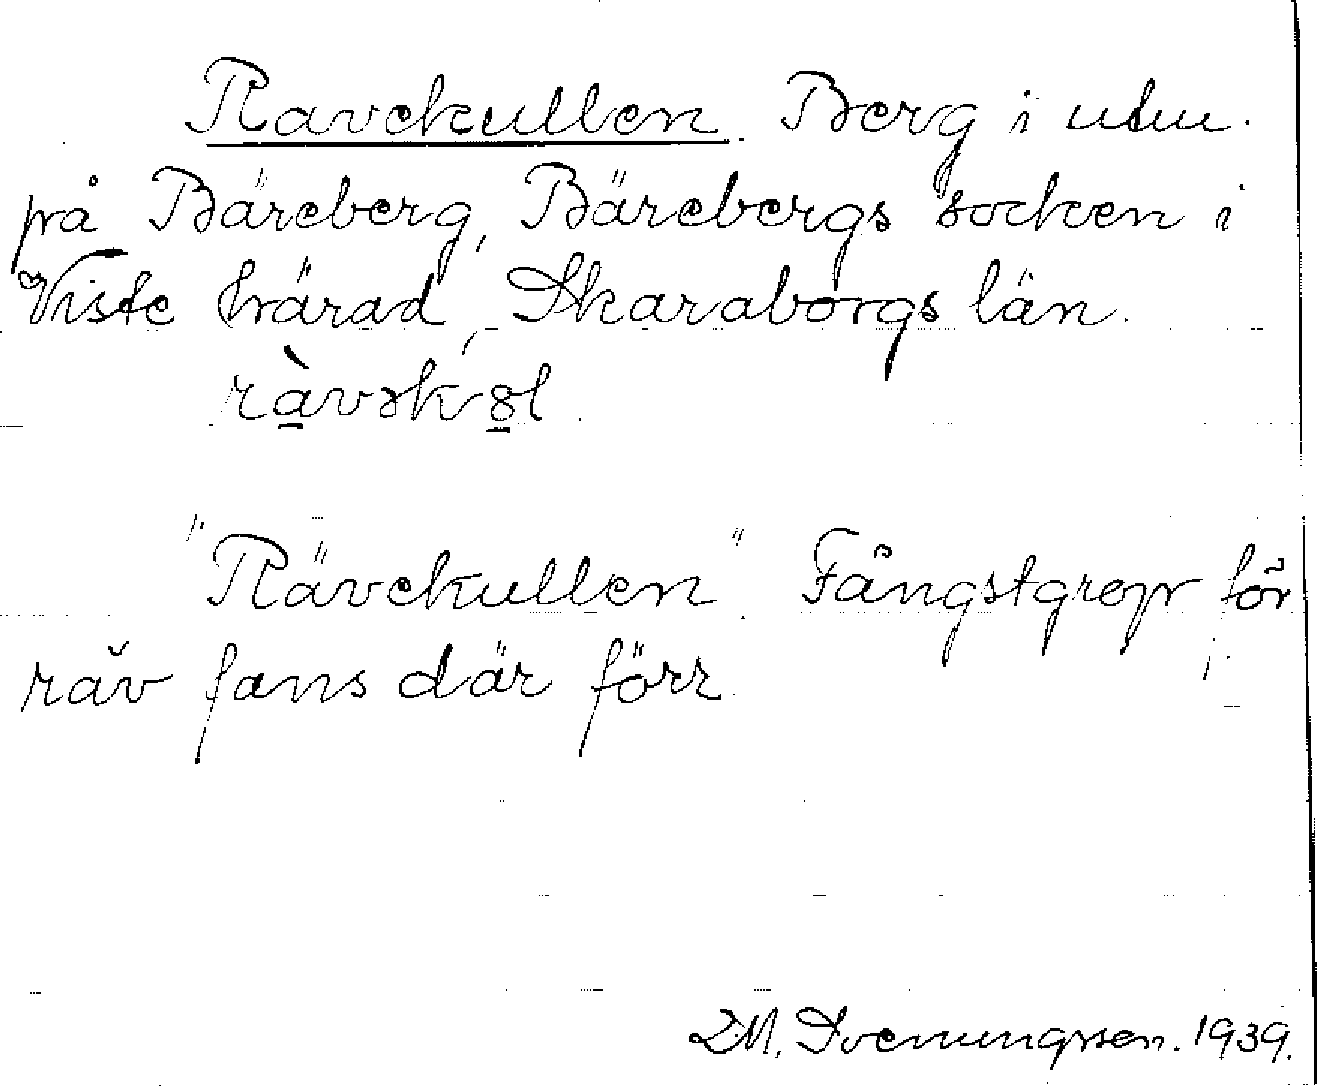 Ravekullen. Berg i utm.
på Bäreberg, Bärebergs socken i
Viste härad, Skaraborgs län.
ràvək ɞl.
"Rävekullen". Fångstgrop för
räv fans där förr.
D.M. Svenungsson. 1939.